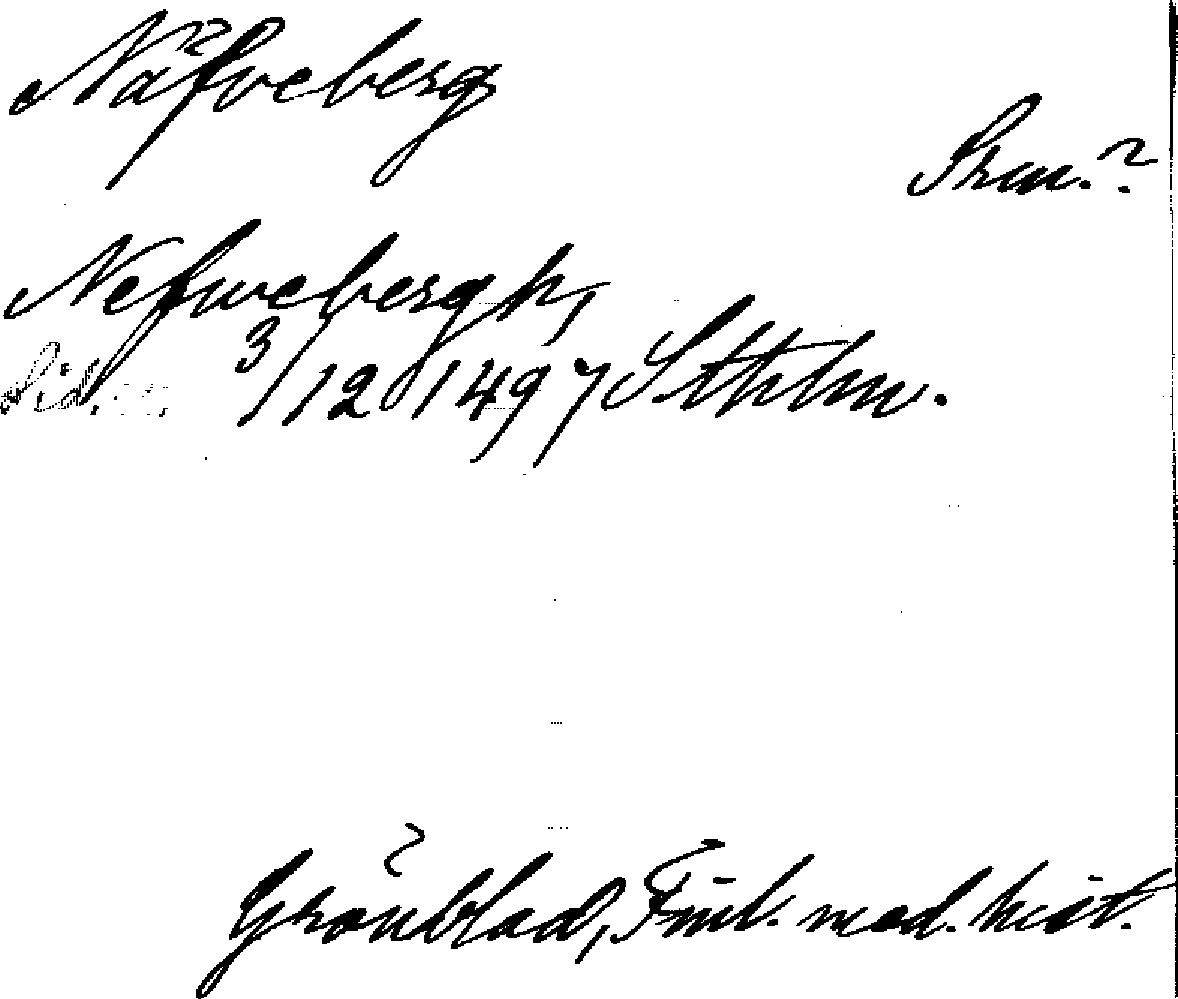 Näfveberg
Srm.?
Nefwebergh,
Sid. 3/12 1497 Sthlm.
Grönblad, Finl. med. hist.